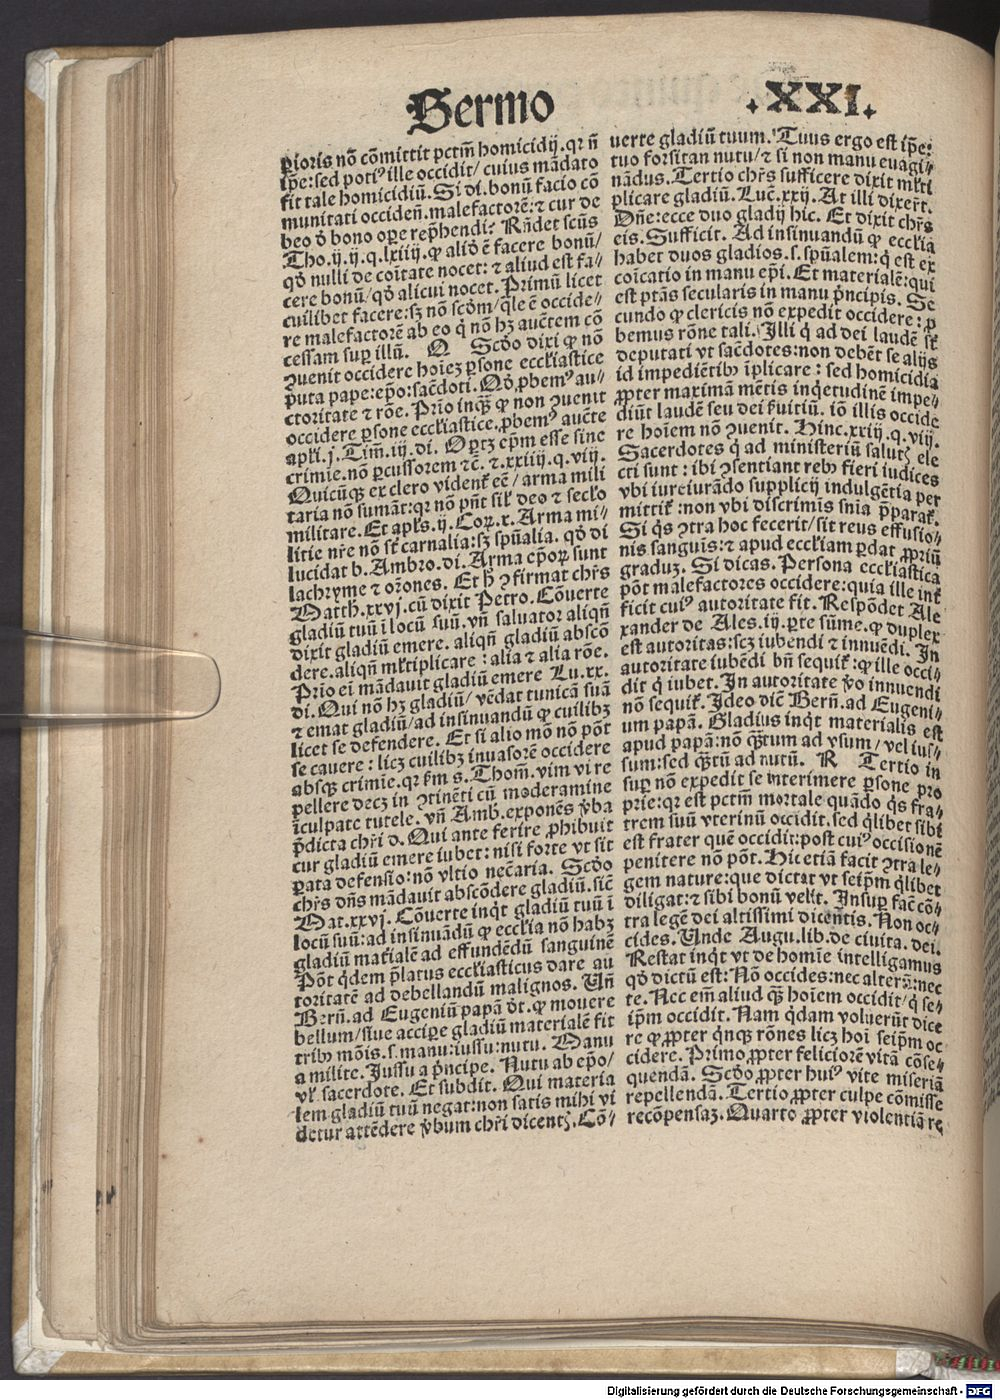 Sermo .XXI.
p̱ioris nõ cõmittit pctm̃ homicidij. qr ñ
ip̃e: sed potiꝰ ille occidit / cuius mãdato
fit tale homicidiũ. Si di. bonũ facio cõ
munitati occideñ. malefactorẽ: ⁊ cur de
beo ð bono oꝑe rep̃hendi? Rñdet scũs
Tho. ij. ij. q. lxiiij. ꝙ alið ẽ facere bonũ /
qð nulli de cõitate nocet: ⁊ aliud est fa⸗
cere bonũ / qð alicui nocet. Primũ licet
cuilibet facere: sꝫ nõ scðm / q̃le ẽ occide⸗
re malefactorẽ ab eo q̇ nõ hꝫ auc̃tem cõ
cessam suꝑ illũ. Q Scðo dixi ꝙ nõ
ꝯuenit occidere hoiẽꝫ ꝑsone eccƚiastice
puta pape: ep̃o: sac̃doti. Qð ꝓbemꝰ au⸗
ctoritate ⁊ rõe. Prĩo inq̃ꝫ ꝙ non ꝯuenit
occidere ꝑsone eccƚiastice, ꝓbemꝰ auc̃te
apƚi. j. Tim̃. iij. di. Oꝑtꝫ ep̃m esse sine
crimĩe. nõ ꝑcussorem ⁊c̃. ⁊ xxiij. q. viij.
Quicũqꝫ ex clero videnƭ eẽ / arma mili
taria nõ sumãt: qr nõ pñt siƚ deo ⁊ secƚo
militare. Et apƚs. ij. Coꝝ. x. Arma mi⸗
litie nr̃e nõ sƭ carnalia: sꝫ sp̃ualia. qð di
lucidat b. Ambro. di. Arma ep̃oꝝ sunt
lachryme ⁊ oꝛ̃ones. Et ɧ ꝯfirmat chr̃s
Matth. xxvj. cũ dixit Petro. Cõuerte
gladiũ tuũ ĩ locũ suũ. vñ saluator aliqñ
dixit gladiũ emere. aliqñ gladiũ abscõ
dere. aliqñ mƚtiplicare: alia ⁊ alia rõe.
Prĩo eĩ mãdauit gladiũ emere Lu. xx.
di. Qui nõ hꝫ gladiũ / vẽdat tunicã suã
⁊ emat gladiũ / ad insinuandũ ꝙ cuilibꝫ
licet se defendere. Et si alio mõ nõ põt
se cauere: licꝫ cuilibꝫ inuasorẽ occidere
absqꝫ crimĩe. qr ẜm s. Thom̃. vim vi re
pellere decꝫ in ꝯtinẽti cũ moderamine
ĩculpate tutele. vñ Amb. exponẽs ṽba
p̃dicta chr̃i d. Qui ante ferire ꝓhibuit
cur gladiũ emere iubet: nisi forte vt sit
ꝑata defensio: nõ vltio nec̃aria. Scðo
chr̃s dñs mãdauit abscõdere gladiũ. sic̃
Mat. xxvj. Cõuerte inq̇t gladiũ tuũ ĩ
locũ suũ: ad insinuãdũ ꝙ eccƚia nõ habꝫ
gladiũ maƭialẽ ad effundẽdũ sanguinẽ
Põt q̇dem p̃latus eccƚiasticus dare au
toritatẽ ad debellandũ malignos. Vñ
Berñ. ad Eugeniũ papã ðt. ꝙ mouere
bellum / siue acciꝑe gladiũ materialẽ fit
tribꝰ mõis. s. manu: iussu: nutu. Manu
a milite. Jussu a p̃ncipe. Nutu ab ep̃o /
vƚ sacerdote. Et subdit. Qui materia
lem gladiũ tuũ negat: non satis mihi vi
detur attẽdere ṽbum chr̃i dicentꝭ. Cõ⸗
uerte gladiũ tuum. Tuus ergo est ip̃e:
tuo forsitan nutu / ⁊ si non manu euagi⸗
nãdus. Tertio chr̃s sufficere dixit mƚti
plicare gladiũ. Luc̃. xxij. At illi dixer̃t.
Dñe: ecce duo gladij hic. Et dixit chr̃s
eis. Sufficit. Ad insinuandũ ꝙ eccƚia
habet duos gladios. s. sp̃ualem: q̇ est ex
cõicatio in manu ep̃i. Et materialẽ: qui
est ptãs secularis in manu p̃ncipis. Se
cundo ꝙ clericis nõ expedit occidere: ꝓ
bemus rõne tali. Illi q̇ ad dei laudẽ sƭ
deputati vt sac̃dotes: non debẽt se alijs
id impediẽtibꝰ ĩplicare: sed homicidia
ꝓpter maximã mẽtis inq̇etudinẽ impe⸗
diũt laudẽ seu dei ẜuitiũ. iõ illis occide
re hoiẽm nõ ꝯuenit. Hinc. xxiij. q. viij.
Sacerdotes q̇ ad ministeriũ salutꝭ ele
cti sunt: ibi ꝯsentiant rebꝰ fieri iudices
vbi iureiurãdo supplicij indulgẽtia per
mittiƭ: non vbi discrimĩs sñia p̃paraƭ.
Si q̇s ꝯtra hoc fecerit / sit reus effusio⸗
nis sanguĩs: ⁊ apud eccƚiam ꝑdat ꝓpriũ
graduꝫ. Si dicas. Persona eccƚiastica
põt malefactores occidere: quia ille inƭ
ficit cuiꝰ autoritate fit. Respõdet Ale
xander de Ales. ij. ꝑte sum̃e. ꝙ duplex
est autoritas: scꝫ iubendi ⁊ innuẽdi. In
autoritate iubẽdi bñ sequiƭ: ꝙ ille occi⸗
dit q̇ iubet. In autoritate ṽo innuendi
nõ sequiƭ. Ideo dic̃ Berñ. ad Eugeni⸗
um papã. Gladius inq̇t materialis est
apud papã: nõ q̃ꝫtum ad vsum / vel ius⸗
sum: sed q̃ꝫtũ ad nutũ. R Tertio in
suꝑ nõ expedit se interimere ꝑsone pro
prie: qr est pctm̃ mortale quãdo q̇s fra⸗
trem suũ vterinũ occidit. sed q̇libet sibi
est frater quẽ occidit: post cuiꝰ occisionẽ
penitere nõ põt. Hic etiã facit ꝯtra le⸗
gem nature: que dictat vt seip̃m q̇libet
diligat: ⁊ sibi bonũ velit. Insuꝑ fac̃ cõ⸗
tra legẽ dei altissimi dicentis. Non oc⸗
cides. Unde Augu. lib. de ciuita. dei.
Restat inq̇t vt de homĩe intelligamus
qð dictũ est: Nõ occides: nec alterũ: nec
te. Nec em̃ aliud q̃ꝫ hoiẽm occidit / q̇ se⸗
ip̃m occidit. Nam q̇dam voluerũt dice
re ꝙ ꝓpter q̇nqꝫ rõnes licꝫ hoi seip̃m oc
cidere. Primo ꝓpter feliciorẽ vitã cõse⸗
quendã. Scðo ꝓpter huiꝰ vite miseriã
repellendã. Tertio ꝓpter culpe cõmisse
recõpensaꝫ. Quarto ꝓpter violentiã re
Digitalisierung gefördert durch die Deutsche Forschungsgemeinschaft - DFG